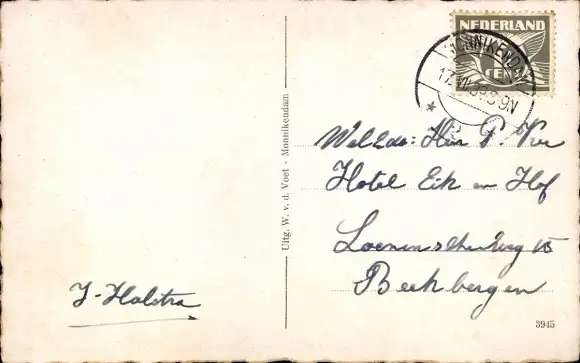 NEDERLAND
1 CENT
MONNIKENDAM
Uitg. W. v. d. Voet - Monnikendam
Heer P.
Hotel Eik en Hof
Loenenscheweg 15
Beekbergen
J-Halstra
3945